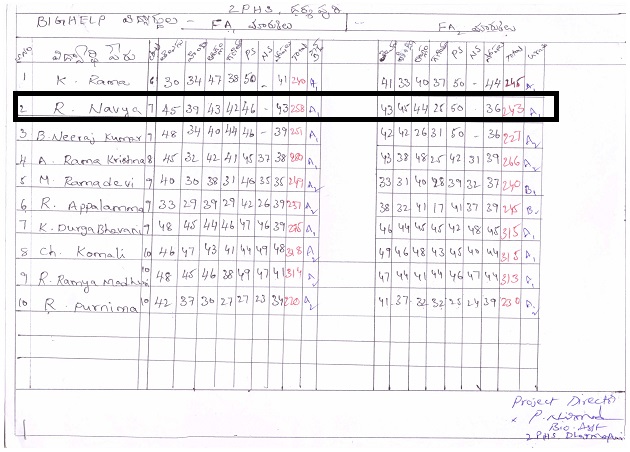 ZPHS. ధర్మపురి
BIGHELP విద్యార్థులు - FA మార్కులు FA మార్కులు
విద్యార్థి పేరు PS NS TOTAL PS NS TOTAL
1 K. Rama 6 30 34 47 38 50 - 41 240 A1 41 33 40 37 50 - 44 245 A1
2 R. Navya 7 45 39 43 42 46 - 43 258 A1 43 45 44 25 50 - 36 243 A1
3 B. Neeraj Kumar 7 48 34 40 44 46 - 39 251 A1 42 42 26 31 50 - 36 227 A2
4 A. Rama Krishna 8 45 32 42 41 45 37 38 280 A1 43 38 48 25 42 31 39 266 A2
5 M. Ramadevi 9 40 30 38 31 40 35 35 249 A2 33 31 40 28 39 32 37 240 B1
6 R. Appalamma 9 33 29 39 29 42 26 39 237 A2 38 32 41 17 41 37 39 245 B2
7 K. Durga Bhavani 9 48 45 44 46 47 46 39 A1 46 44 45 45 42 48 45 315 A1
8 Ch. Komali 10 46 47 43 41 44 49 48 318 A1 49 46 48 43 45 40 44 315 A1
9 R. Ramya Madhuri 10 48 45 46 38 49 47 41 314 A1 47 44 41 44 46 47 44 313 A1
10 R. Purnima 10 42 37 30 27 27 23 34 220 A2 41 37 32 32 25 24 39 230 A2
Project Directr
Bio. Asst
ZPHS Dharmapuri